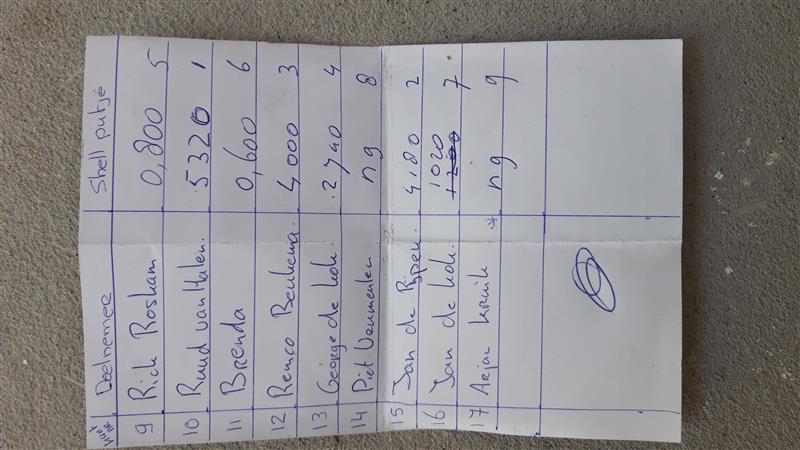 Deelnemer Shell putje
9 Rick Rosham 0,800 5
10 Ruud van Halen. 5320 1
11 Brenda 0,600 6
12 Remco Beukema. 4,000 3
13 George de kok. 2740 4
14 Piet Vermeulen ng 8
15 Jan de Rijpen. 4,180 2
16 Jan de kok. 1020 7
17 Arjan kruik * ng 9